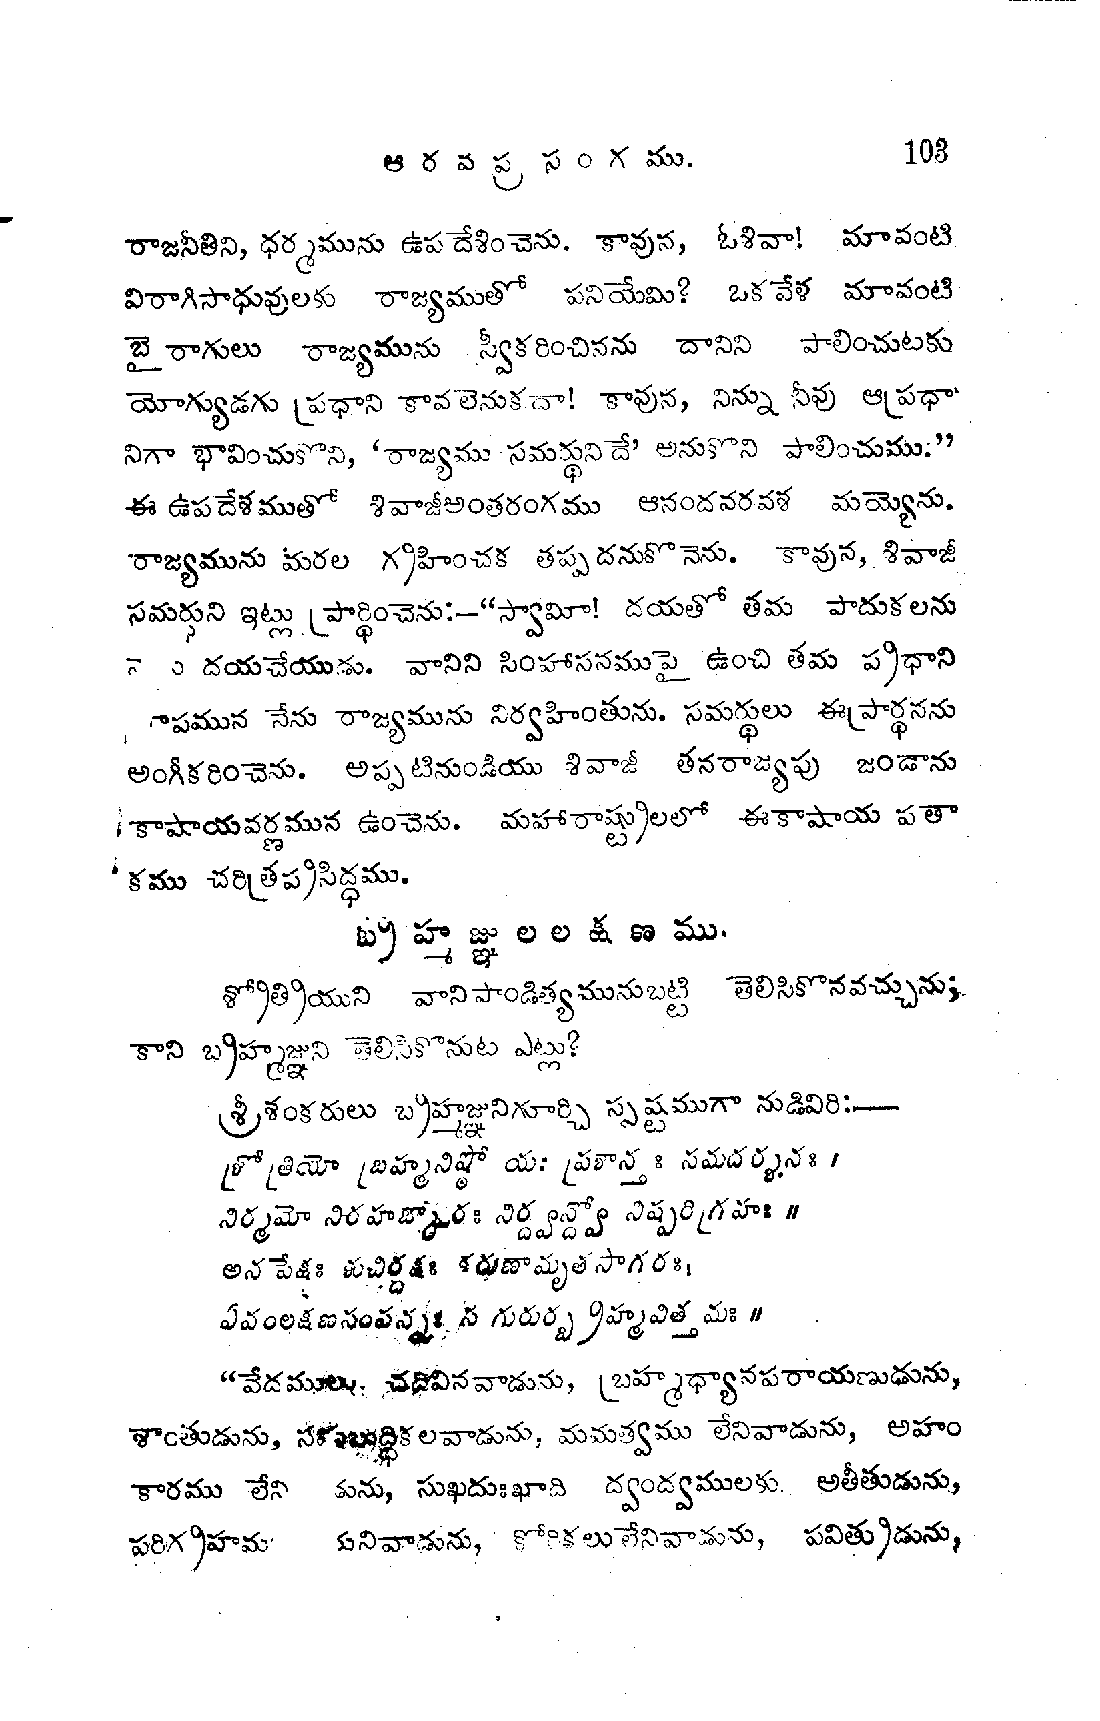 ఆరవప్రసంగము. 103
రాజనీతిని, ధర్మమును ఉపదేశించెను. కావున, ఓశివా! మావంటి
విరాగిసాధువులకు రాజ్యముతో పనియేమి? ఒకవేళ మావంటి
బైరాగులు రాజ్యమును స్వీకరించినను దానిని పాలించుటకు
యోగ్యుడగు ప్రధాని కావలెనుకదా! కావున, నిన్ను నీవు ఆప్రధా
నిగా భావించుకొని, ‘రాజ్యము సమర్థునిదే’ అనుకొని పాలించుము:”
ఈ ఉపదేశముతో శివాజీఅంతరంగము ఆనందవరవశ మయ్యెను.
రాజ్యమును మరల గ్రహించక తప్పదనుకొనెను. కావున, శివాజీ
సమర్థుని ఇట్లు ప్రార్థించెను:—“స్వామీ! దయతో తమ పాదుకలను
దయచేయుడు. వానిని సింహాసనముపై ఉంచి తమ ప్రధాని
నేను రాజ్యమును నిర్వహింతును. సమర్థులు ఈప్రార్థనను
అంగీకరించెను. అప్పటినుండియు శివాజీ తనరాజ్యపు జండాను
కాషాయవర్ణమున ఉంచెను. మహారాష్ట్రులలో ఈకాషాయ పతా
కము చరిత్రప్రసిద్ధము.
బ్రహ్మజ్ఞులలక్షణము.
శ్రోత్రియుని వానిపాండిత్యమునుబట్టి తెలిసికొనవచ్చును;
కాని బ్రహ్మజ్ఞుని తెలిసికొనుట ఎట్లు?
శ్రీశంకరులు బ్రహ్మజ్ఞునిగూర్చి స్పష్టముగా నుడివిరి:—
శ్రోత్రియో బ్రహ్మనిష్ఠో యః ప్రశాన్తః సమదర్శనః ।
నిర్మమో నిరహఙ్కారః నిర్ద్వన్ద్వో నిష్పరిగ్రహః ॥
అనపేక్షః శుచిర్దక్షః కరుణామృతసాగరః,
ఏవంలక్షణసంపన్నః స గురుర్బ్రహ్మవిత్తమః ॥
“వేదములు, చదివినవాడును, బ్రహ్మధ్యానపరాయణుడును,
శాంతుడును, సమబుద్ధికలవాడును, మమత్వము లేనివాడును, అహం
కారము లేని సుఖదుఃఖాది ద్వంద్వములకు అతీతుడును,
కోరికలులేనివాడును, పవిత్రుడును,